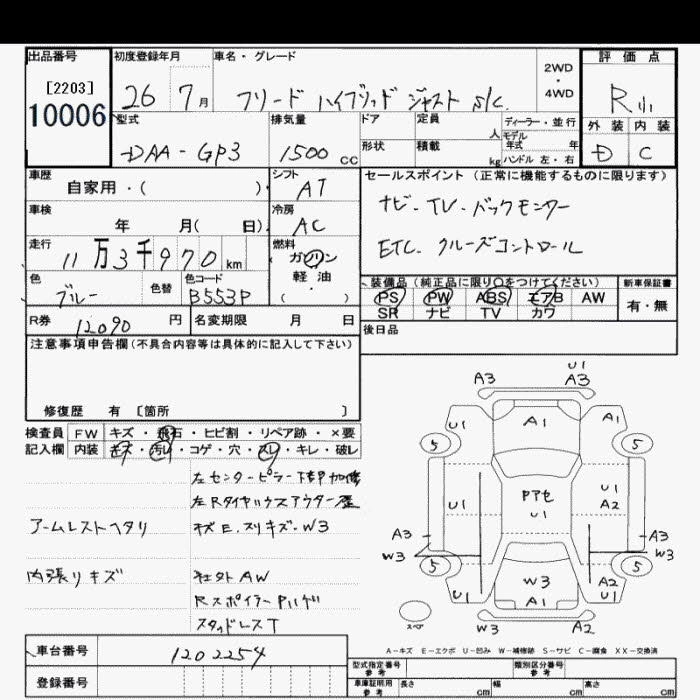 出品番号 初度登録年月 車名・グレード 評価点
[2203] 26 7月 フリード ハイブリッド ジャスト S/C. 2WD・4WD R
10006
型式 排気量 ドア 定員 人 ディーラー・並行 外装 内装
DAA-GP3 1500cc 形状 積載 kg モデル年式 年 ハンドル 左・右 D C
車歴 シフト セールスポイント (正常に機能するものに限ります)
自家用・( ) AT ナビ・TV・バックモニター
車検 冷房
年 月( 日) AC ETC. クルーズコントロール
走行 燃料
11万3千970km ガソリン
色 色替 色コード 軽油・ 装備品 (純正品に限り○をつけてください) 新車保証書
ブルー B553P ( ) PS PW ABS エアB AW 有・無
SR ナビ TV カワ
R券 12090円 名変期限 月 日 後日品
注意事項申告欄(不具合内容等は具体的に記入して下さい)
修復歴 有 [箇所 ]
検査員 FW キズ・飛石・ヒビ割・リペア跡・×要
記入欄 内装 キズ・汚レ・コゲ・穴・スレ・キレ・破レ
左センターピラー下部
左Rタイヤハウスアウター
アームレストヘタリ キズE.スリキズ.W3
内張りキズ 社外AW
Rスポイラー
スタッドレスT
車台番号 1202254
登録番号
U1
A3 A3
U1 A1 A1
5 5
U1 Pアセ U1 U1
A2
A3 A3
W3 W3
5 5
W3 A2
U1 A1 U1
スペア W3 A2
A-キズ E-エクボ U-凹み W-補修跡 S-サビ C-腐食 XX-交換済
型式指定番号 参考 類別区分番号 参考
車庫証明用 参考 長さ cm 幅 cm 高さ cm